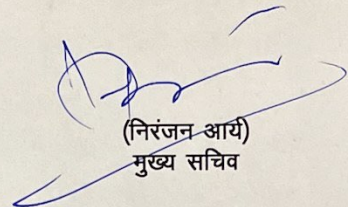 (निरंजन आर्य)
मुख्य सचिव